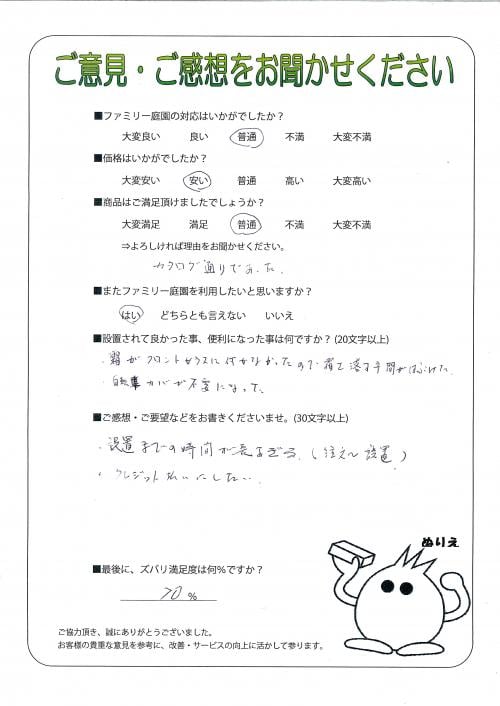 ご意見・ご感想をお聞かせください
■ファミリー庭園の対応はいかがでしたか？
大変良い 良い 普通 不満 大変不満
■価格はいかがでしたか？
大変安い 安い 普通 高い 大変高い
■商品はご満足頂けましたでしょうか？
大変満足 満足 普通 不満 大変不満
⇒よろしければ理由をお聞かせください。
カタログ通りであった。
■またファミリー庭園を利用したいと思いますか？
はい どちらとも言えない いいえ
■設置されて良かった事、便利になった事は何ですか？(20文字以上)
・霜がフロントガラスに付かなかったので 落す手間がはぶけた。
・自転車カバーが不要になった。
■ご感想・ご要望などをお書きくださいませ。(30文字以上)
・設置までの時間が長すぎる。(注文〜設置)
・クレジット払いにしたい。
ぬりえ
■最後に、ズバリ満足度は何％ですか？
70 %
ご協力頂き、誠にありがとうございました。
お客様の貴重な意見を参考に、改善・サービスの向上に活かして参ります。